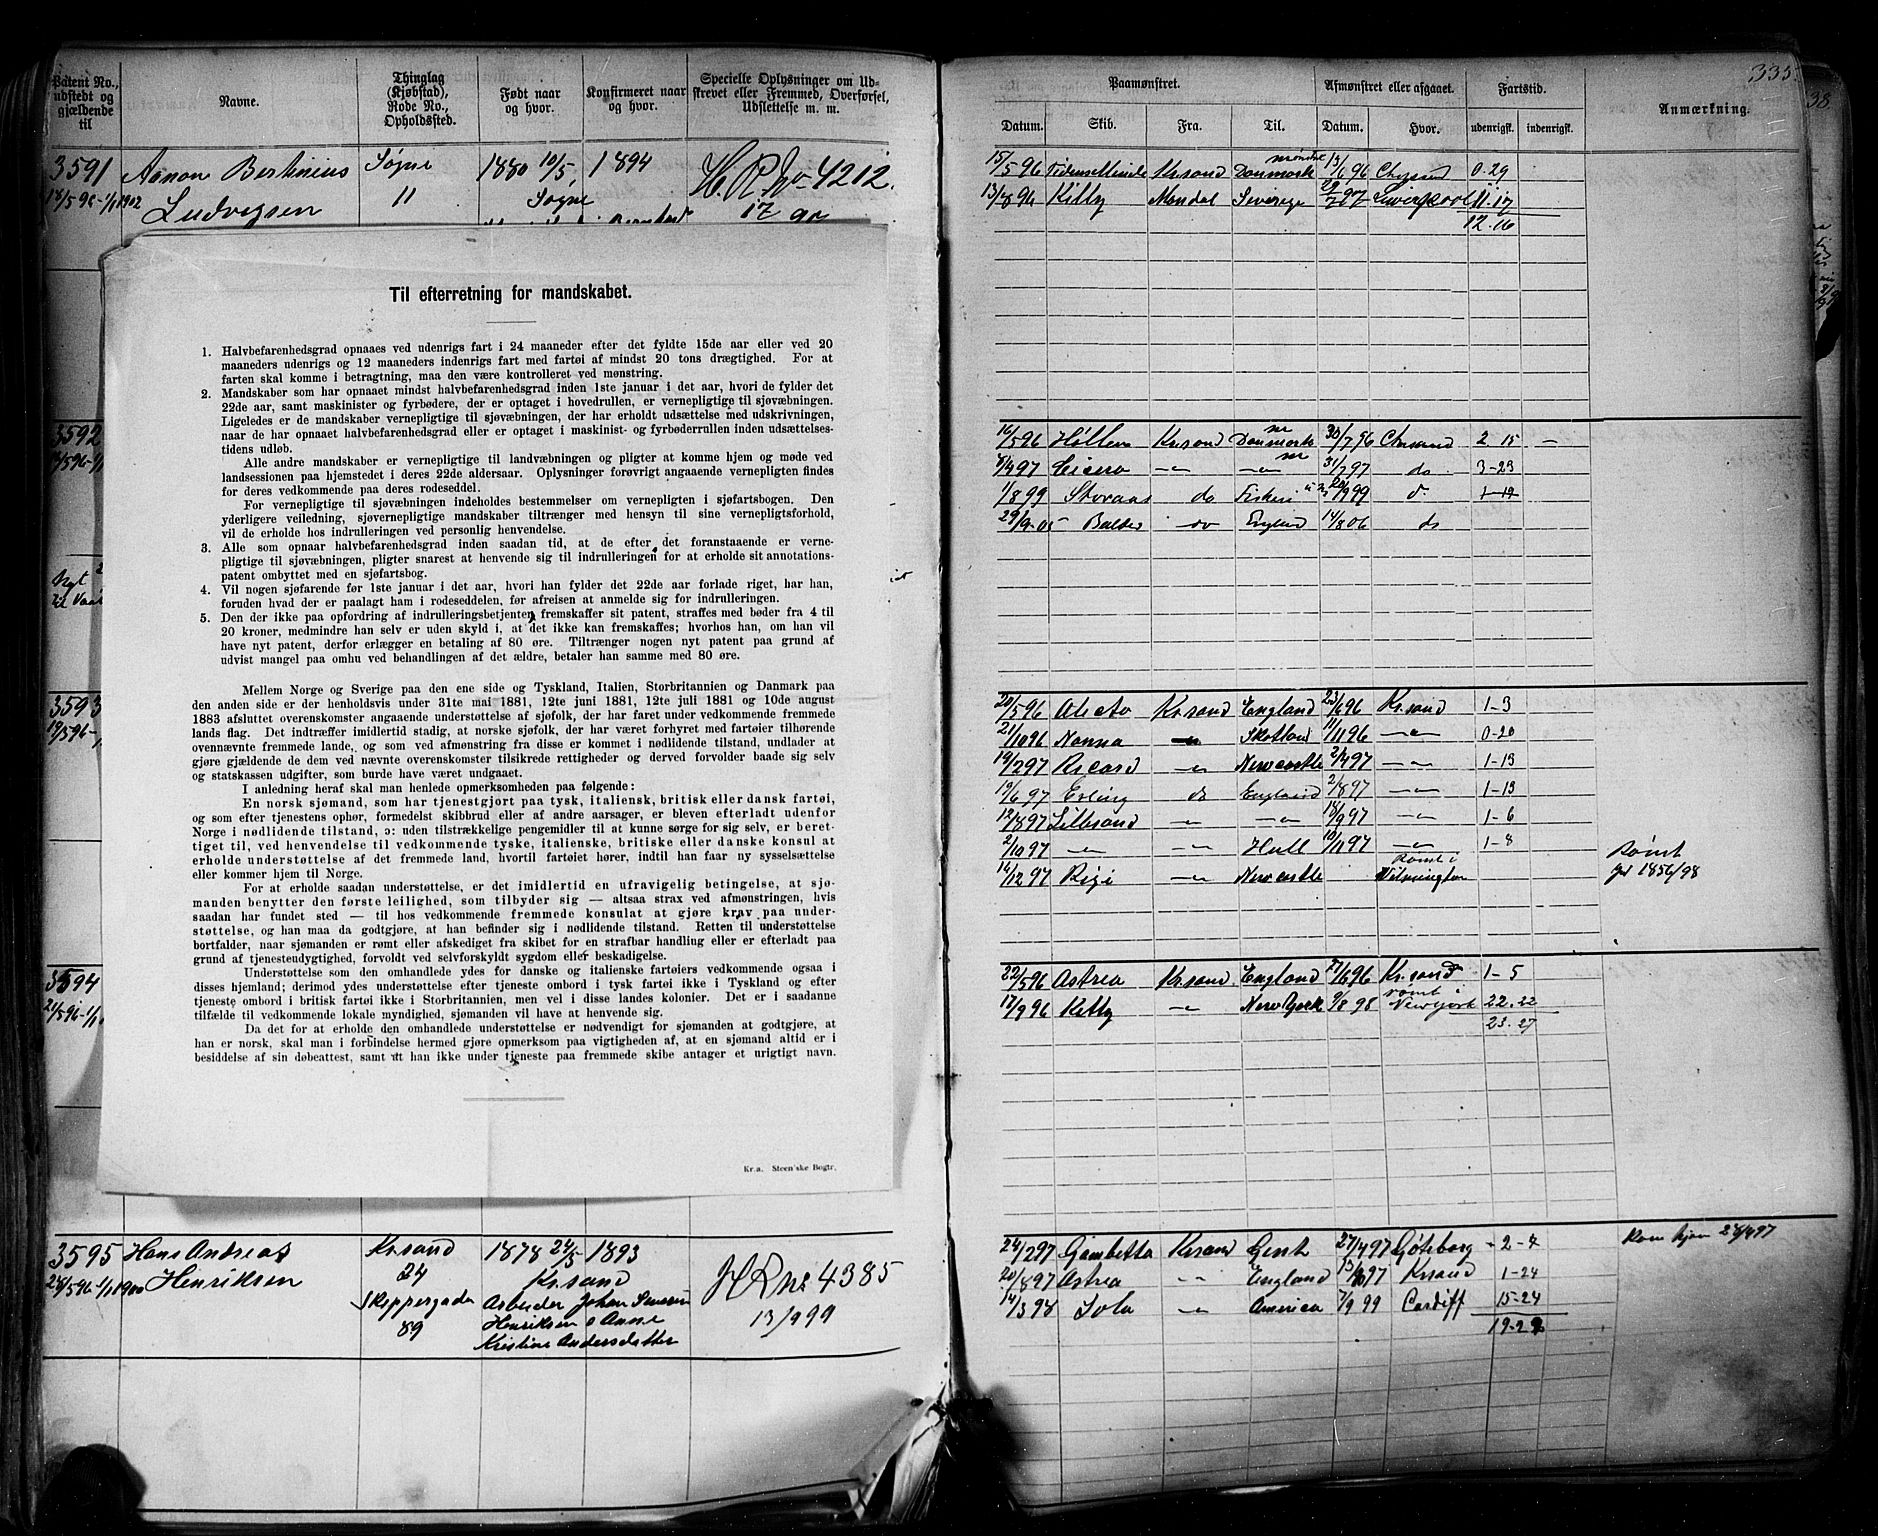 Patent No., udstedt og gjældende til
Navne.
Thinglag (Kjøbstad), Rode No., Opholdssted.
Født naar og hvor.
Konfirmeret naar og hvor.
Specielle Oplysninger om Udskrevet eller Fremmed, Overførsel, Udslettelse m. m.
3591 Aanon Bertinius Søgne 1880 10/5 1894 H. R. No 4212.
Ludvigsen 11 Søgne
Til efterretning for mandskabet.
1. Halvbefarenhedsgrad opnaaes ved udenrigs fart i 24 maaneder efter det fyldte 15de aar eller ved 20
maaneders udenrigs og 12 maaneders indenrigs fart med fartøi af mindst 20 tons drægtighed. For at
farten skal komme i betragtning, maa den være kontrolleret ved mønstring.
2. Mandskaber som har opnaaet mindst halvbefarenhedsgrad inden 1ste januar i det aar, hvori de fylder det
22de aar, samt maskinister og fyrbødere, der er optaget i hovedrullen, er vernepligtige til sjøvæbningen.
Ligeledes er de mandskaber vernepligtige til sjøvæbningen, der har erholdt udsættelse med udskrivningen,
naar de har opnaaet halvbefarenhedsgrad eller er optaget i maskinist- og fyrbøderrullen inden udsættelses-
tidens udløb.
Alle andre mandskaber er vernepligtige til landvæbningen og pligter at komme hjem og møde ved
landsessionen paa hjemstedet i deres 22de aldersaar. Oplysninger forøvrigt angaaende vernepligten findes
for deres vedkommende paa deres rodeseddel.
For vernepligtige til sjøvæbningen indeholdes bestemmelser om vernepligten i sjøfartsbogen. Den
yderligere veiledning, sjøvernepligtige mandskaber tiltrænger med hensyn til sine vernepligtsforhold,
vil de erholde hos indrulleringen ved personlig henvendelse.
3. Alle som opnaar halvbefarenhedsgrad inden saadan tid, at de efter det foranstaaende er verne-
pligtige til sjøvæbningen, pligter snarest at henvende sig til indrulleringen for at erholde sit annotations-
patent ombyttet med en sjøfartsbog.
4. Vil nogen sjøfarende før 1ste januar i det aar, hvori han fylder det 22de aar forlade riget, har han,
foruden hvad der er paalagt ham i rodeseddelen, før afreisen at anmelde sig for indrulleringen.
5. Den der ikke paa opfordring af indrulleringsbetjenten fremskaffer sit patent, straffes med bøder fra 4 til
20 kroner, medmindre han selv er uden skyld i, at det ikke kan fremskaffes; hvorhos han, om han vil
have nyt patent, derfor erlægger en betaling af 80 øre. Tiltrænger nogen nyt patent paa grund af
udvist mangel paa omhu ved behandlingen af det ældre, betaler han samme med 80 øre.
Mellem Norge og Sverige paa den ene side og Tyskland, Italien, Storbritannien og Danmark paa
den anden side er der henholdsvis under 31te mai 1881, 12te juni 1881, 12te juli 1881 og 10de august
1883 afsluttet overenskomster angaaende understøttelse af sjøfolk, der har faret under vedkommende fremmede
lands flag. Det indtræffer imidlertid stadig, at norske sjøfolk, der har været forhyret med fartøier tilhørende
ovennævnte fremmede lande, og som ved afmønstring fra disse er kommet i nødlidende tilstand, undlader at
gjøre gjældende de dem ved nævnte overenskomster tilsikrede rettigheder og derved forvolder baade sig selv
og statskassen udgifter, som burde have været undgaaet.
I anledning heraf skal man henlede opmerksomheden paa følgende:
En norsk sjømand, som har tjenestgjort paa tysk, italiensk, britisk eller dansk fartøi,
og som efter tjenestens ophør, formedelst skibbrud eller af andre aarsager, er bleven efterladt udenfor
Norge i nødlidende tilstand, ɔ: uden tilstrækkelige pengemidler til at kunne sørge for sig selv, er beret-
tiget til, ved henvendelse til vedkommende tyske, italienske, britiske eller danske konsul at
erholde understøttelse af det fremmede land, hvortil fartøiet hører, indtil han faar ny sysselsættelse
eller kommer hjem til Norge.
For at erholde saadan understøttelse, er det imidlertid en ufravigelig betingelse, at sjø-
manden benytter den første leilighed, som tilbyder sig — altsaa strax ved afmønstringen, hvis
saadan har fundet sted — til hos vedkommende fremmede konsulat at gjøre krav paa under-
støttelse, og han maa da godtgjøre, at han befinder sig i nødlidende tilstand. Retten til understøttelse
bortfalder, naar sjømanden er rømt eller afskediget fra skibet for en strafbar handling eller er efterladt paa
grund af tjenestendygtighed, forvoldt ved selvforskyldt sygdom eller beskadigelse.
Understøttelse som den omhandlede ydes for danske og italienske fartøiers vedkommende ogsaa i
disses hjemland; derimod ydes understøttelse efter tjeneste ombord i tysk fartøi ikke i Tyskland og efter
tjeneste ombord i britisk fartøi ikke i Storbritannien, men vel i disse landes kolonier. Det er i saadanne
tilfælde til vedkommende lokale myndighed, sjømanden vil have at henvende sig.
Da det for at erholde den omhandlede understøttelse er nødvendigt for sjømanden at godtgjøre, at
han er norsk, skal man i forbindelse hermed gjøre opmerksom paa vigtigheden af, at en sjømand altid er i
besiddelse af sin døbeattest, samt at han ikke under tjeneste paa fremmede skibe antager et urigtigt navn.
Kr.a. Steen'ske Bogtr.
3592
3593
3594
3595 Hans Andreas Kr.sand 1878 24/5 1893
Henriksen 24 Kr.sand H R No 4385
Skippergada Arbeider Johan
89 Henriksen o Anne 13/9 99
Kristine Andersdatter
335.
38.
Paamønstret.
Afmønstret eller afgaaet.
Fartstid.
Anmærkning.
Datum. Skib. Fra. Til. Datum. Hvor. udenrigsk. indenrigsk.
15/5 96 Kr.sand Danmark 13/6 96 0-29
13/8 96 Kitty Mandal Sverige Liverpool 11.17
12.16
16/5 96 Kr.sand Danmark 30/7 96 Chrsand 2 15 —
8/4 97 Cicero —"— —"— 31/7 97 do 3-23
1/8 99 Storaas do Fiskeri 99 1-19
29/9 05 Balder do England 14/8 06 do
20/5 96 Alecto Kr.sand England 23/6 96 Kr.sand 1-3
21/10 96 Nanna Skotland 11/11 96 —"— 0-20
19/2 97 Ricard —"— Newcastle 2/4 97 —"— 1-13
19/6 97 Erling do England 2/8 97 —"— 1-13
12/8 97 Lillesand —"— —"— 18/9 97 —"— 1-6
2/10 97 —"— —"— Hull 10/11 97 —"— 1-8
14/12 97 Rigi —"— Newcastle Rømt i Wilmington
Rømt
1856/98
22/5 96 Astrea Kr.sand England 27/6 96 Kr.sand 1-5
17/9 96 Kitty —"— New York 9/8 98 rømt i New York 22.22
23.27
24/2 97 Gambetta Kr.sand Gent 27/4 97 Göteborg 2-4
Kom hjem 28/4 97
20/8 97 Astrea —"— England Kr.sand 1-24
14/3 98 Sola —"— America 7/9 99 Cardiff 15-24